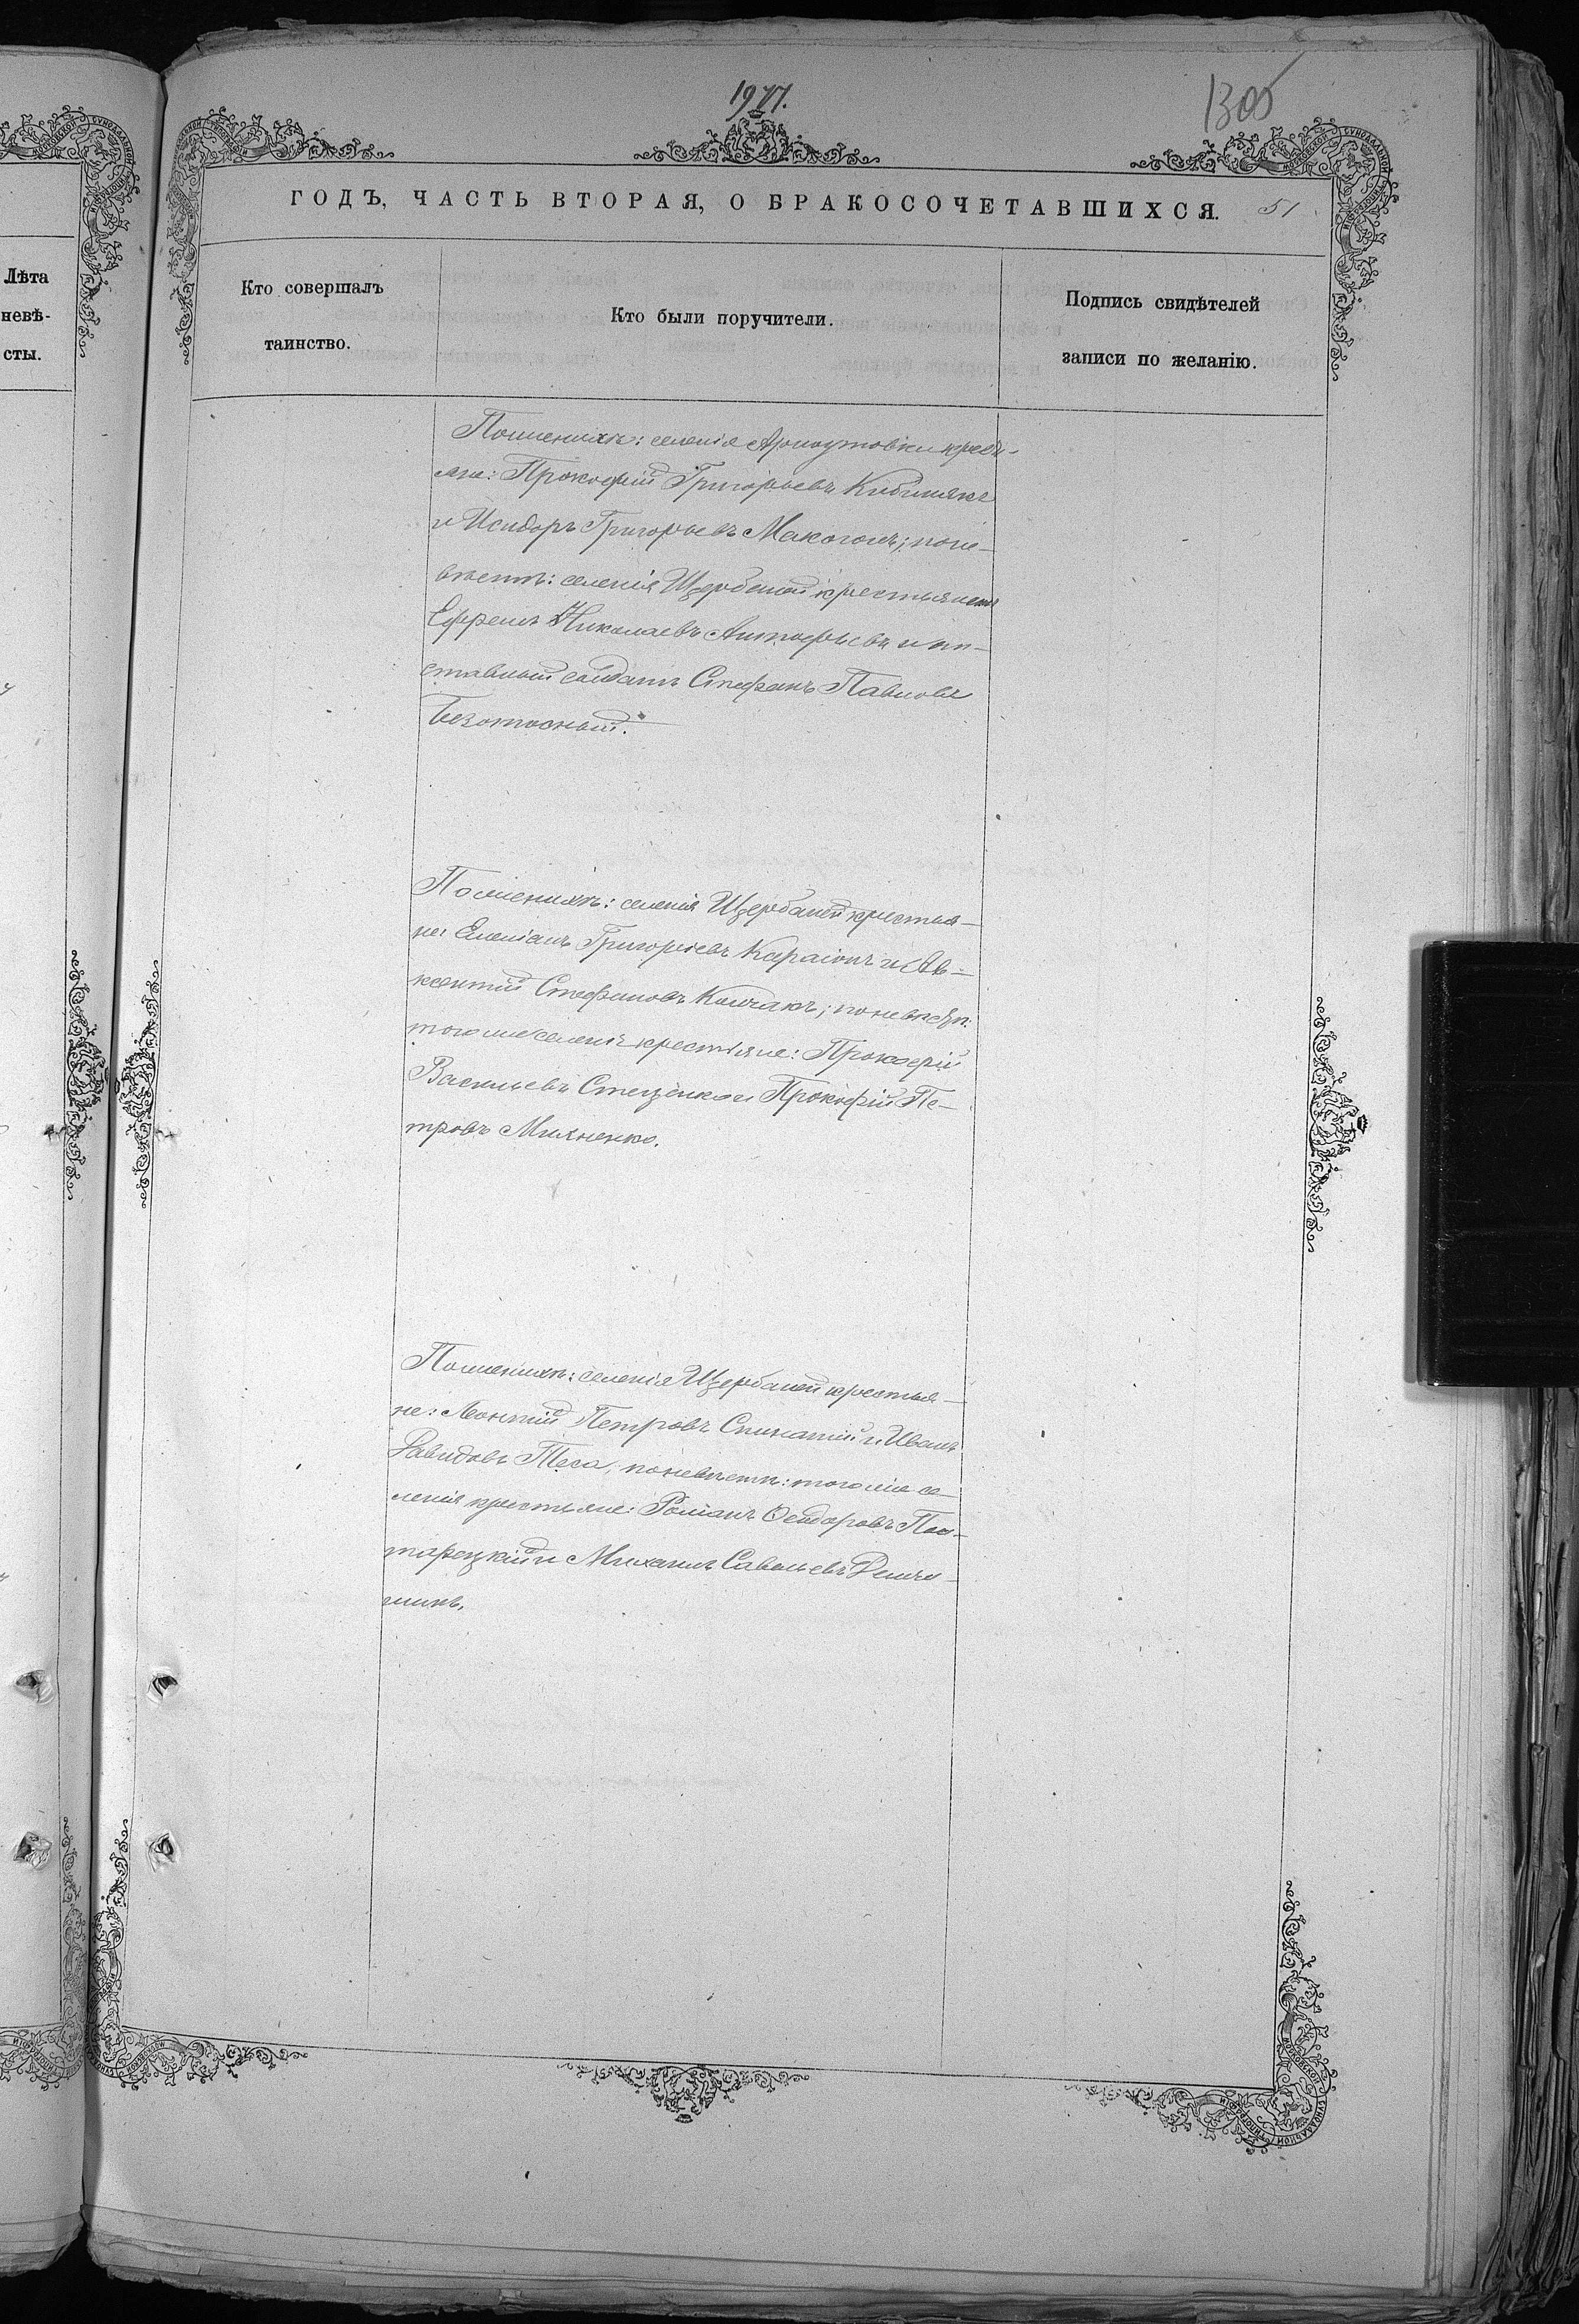 1917.
1305
ГОДЪ, ЧАСТЬ ВТОРАЯ, О БРАКОСОЧЕТАВШИХСЯ.
51
Лѣта
невѣ-
сты.
Кто совершалъ
таинство.
Кто были поручители.
Подпись свидѣтелей
записи по желанію.
По женихѣ: селенія Арнаутовки кресть-
яне: Прокофій Григорьевъ
и Исидоръ Григорьевъ Макогонъ; по не-
вѣстѣ: селенія Щербаней крестьянинъ
Ефремъ Николаевъ и от-
ставный солдатъ Стефанъ Павловъ
Безотосный.
По женихѣ: селенія Щербаней крестья-
не: Емеліанъ Григоріевъ Караіонъ и Ав-
ксентій Стефановъ Колчакъ; по невѣстѣ
того же селенія крестьяне: Прокофій
Васильевъ Стеценко и Прокофій Пе-
тровъ
По женихѣ: селенія Щербаней крестья-
не: Леонтій Петровъ и Иванъ
Давидовъ Теса; по невѣстѣ: того же се-
ленія крестьяне: Романъ Ѳеодоровъ Пол-
торецкій и Михаилъ Савельевъ